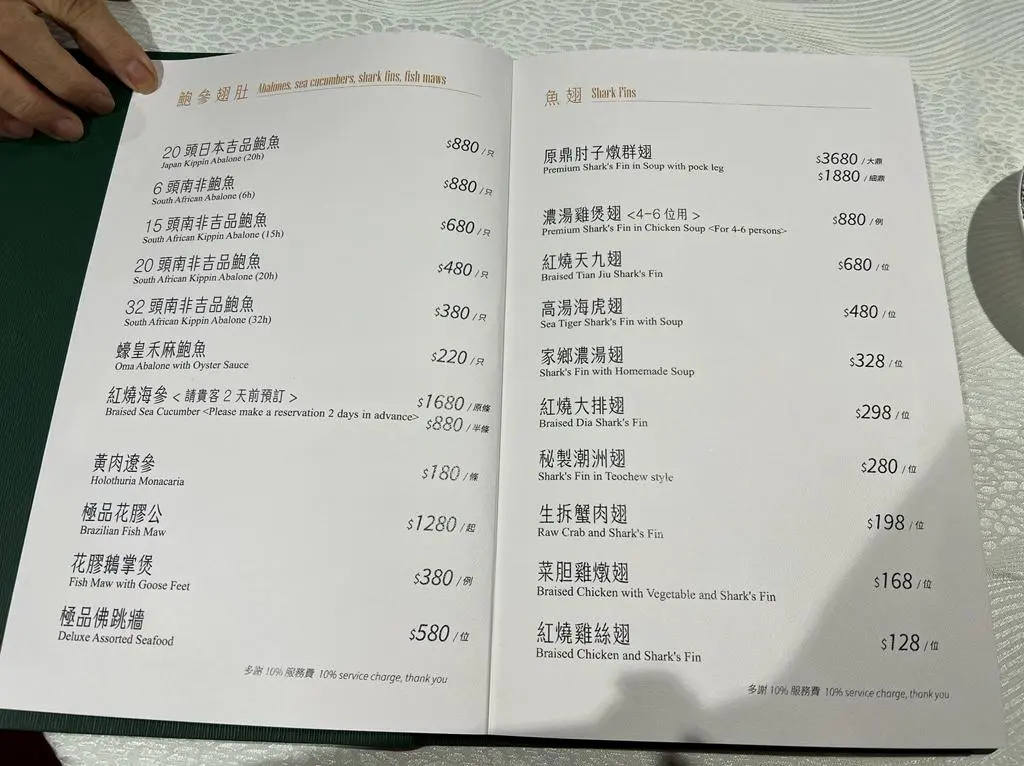 鮑參翅肚 Abalones, sea cucumbers, shark fins, fish maws
20 頭日本吉品鮑魚 $880 /只
Japan Kippin Abalone (20h)
6 頭南非鮑魚 $880 /只
South African Abalone (6h)
15 頭南非吉品鮑魚 $680 /只
South African Kippin Abalone (15h)
20 頭南非吉品鮑魚 $480 /只
South African Kippin Abalone (20h)
32 頭南非吉品鮑魚 $380 /只
South African Kippin Abalone (32h)
蠔皇禾麻鮑魚 $220 /只
Oma Abalone with Oyster Sauce
紅燒海參 < 請貴客 2 天前預訂 > $1680 /原條
Braised Sea Cucumber <Please make a reservation 2 days in advance> $880 /半條
黃肉遼參 $180 /條
Holothuria Monacaria
極品花膠公 $1280 /起
Brazilian Fish Maw
花膠鵝掌煲 $380 /例
Fish Maw with Goose Feet
極品佛跳牆 $580 /位
Deluxe Assorted Seafood
多謝 10% 服務費 10% service charge, thank you
魚翅 Shark Fins
原鼎肘子燉群翅 $3680 /大鼎
Premium Shark's Fin in Soup with pock leg $1880 /細鼎
濃湯雞煲翅 <4-6 位用 > $880 /例
Premium Shark's Fin in Chicken Soup <For 4-6 persons>
紅燒天九翅 $680 /位
Braised Tian Jiu Shark's Fin
高湯海虎翅 $480 /位
Sea Tiger Shark's Fin with Soup
家鄉濃湯翅 $328 /位
Shark's Fin with Homemade Soup
紅燒大排翅 $298 /位
Braised Dia Shark's Fin
秘製潮洲翅 $280 /位
Shark's Fin in Teochew style
生拆蟹肉翅 $198 /位
Raw Crab and Shark's Fin
菜胆雞燉翅 $168 /位
Braised Chicken with Vegetable and Shark's Fin
紅燒雞絲翅 $128 /位
Braised Chicken and Shark's Fin
多謝 10% 服務費 10% service charge, thank you